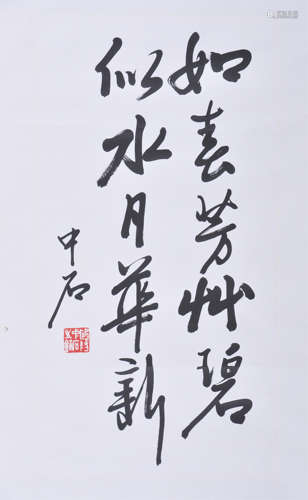 如春芳艸碧
似水月華新
中石